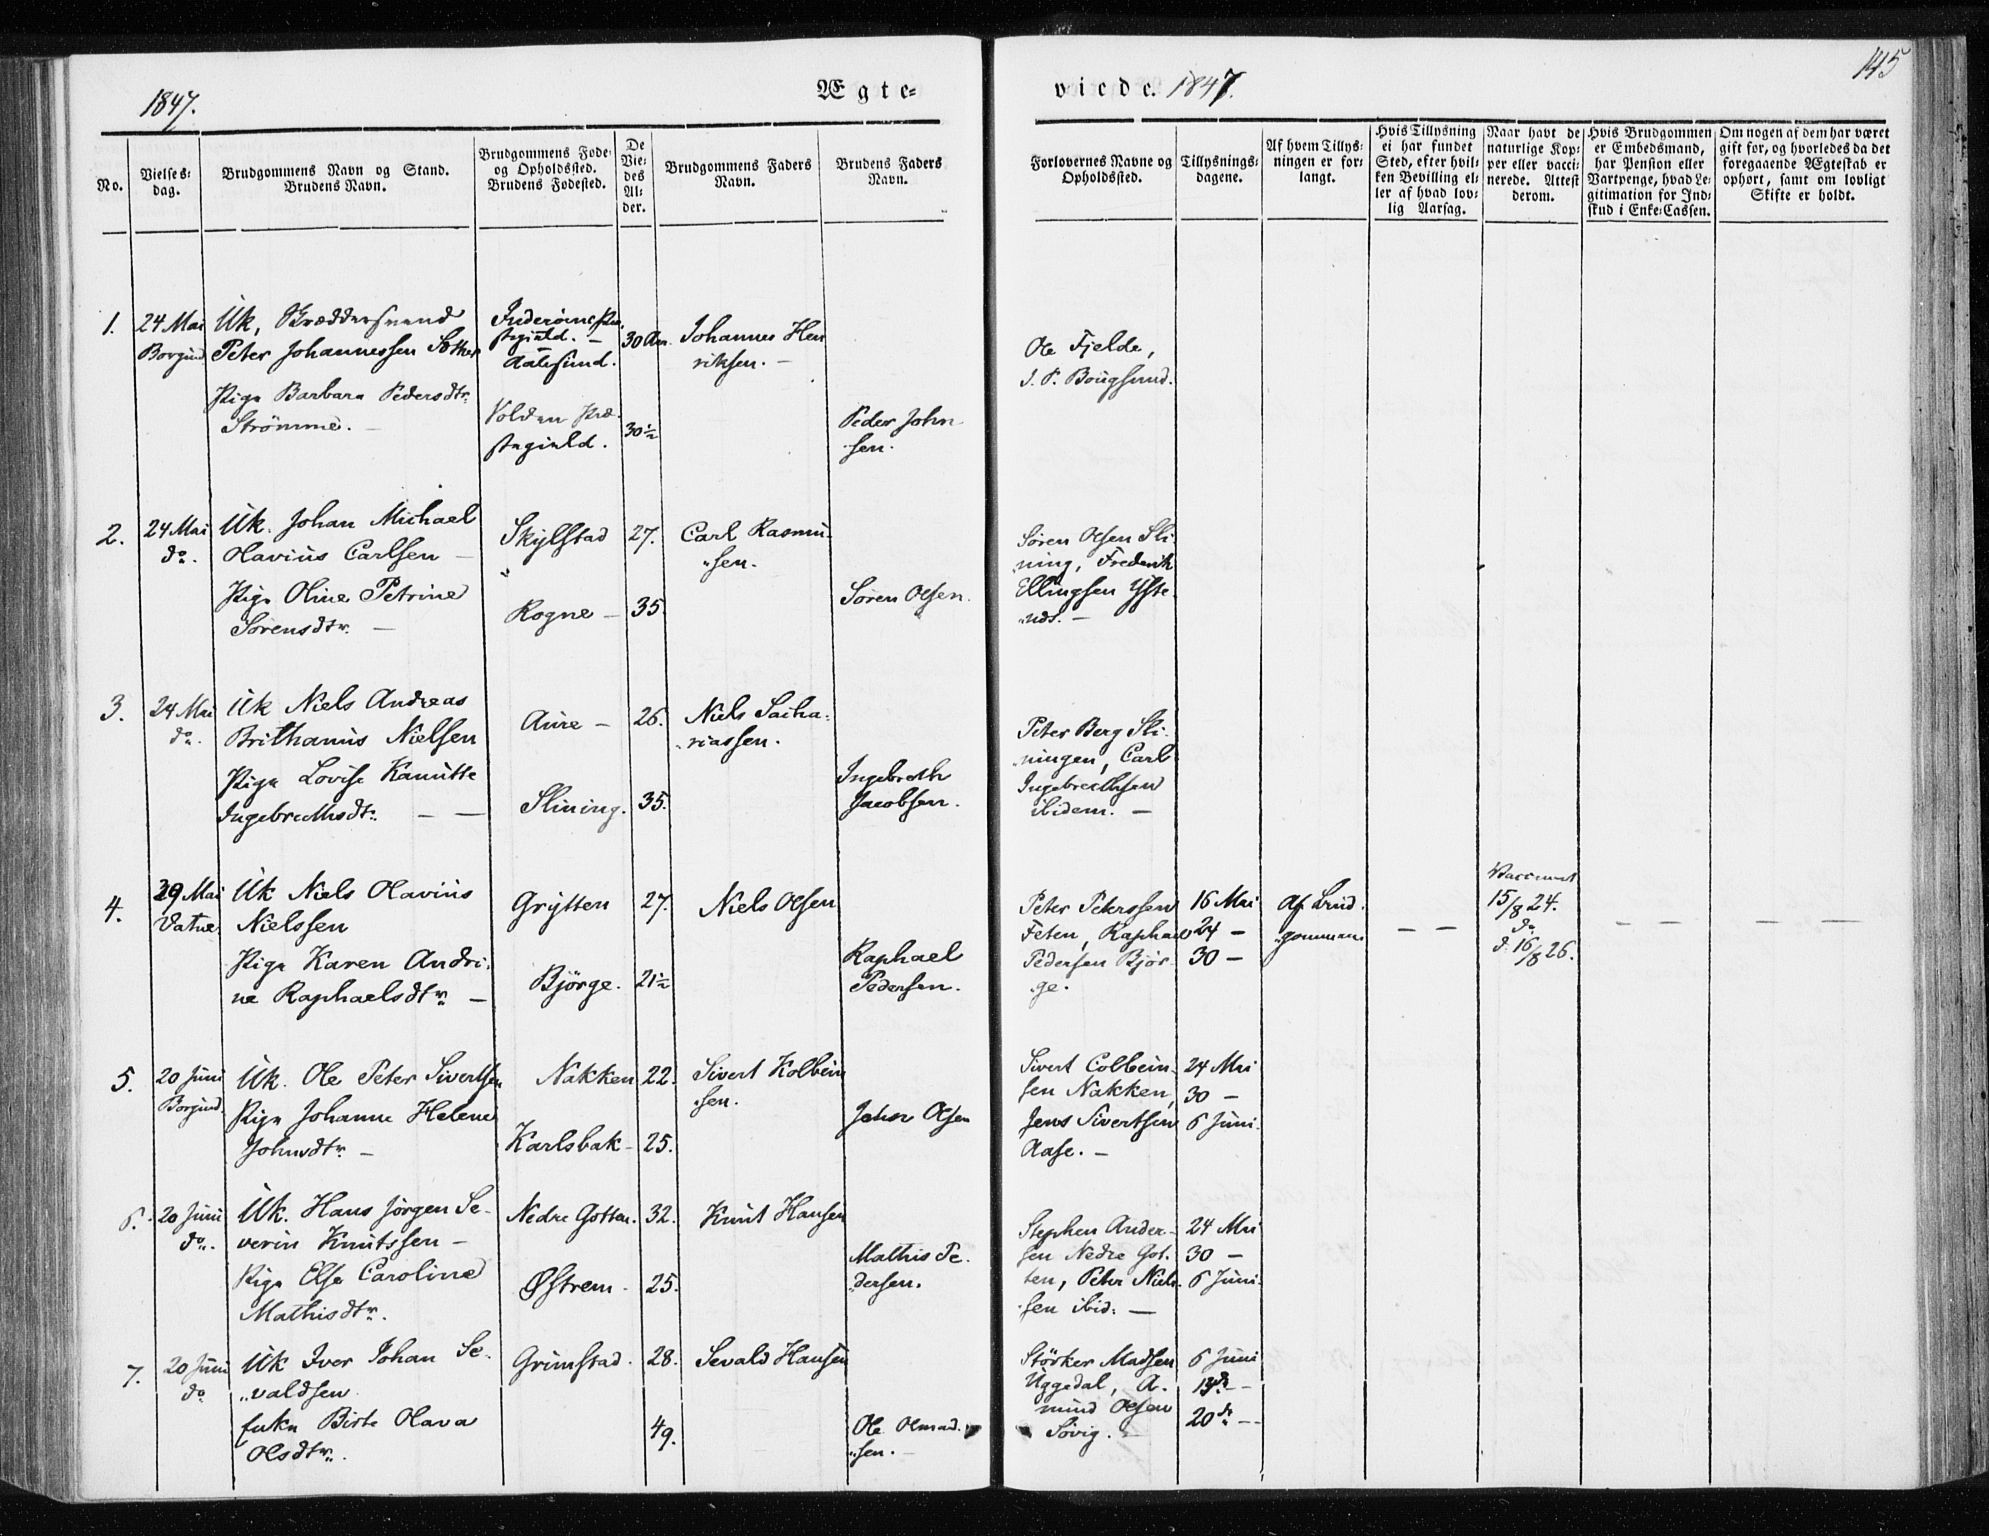 1847.
Ægte-
viede. 1847.
145
No.
Vielses-
dag.
Brudgommens Navn og Stand.
Brudens Navn.
Brudgommens Føde-
og Opholdssted.
Brudens Fødested.
De
Vie-
des
Al-
der.
Brudgommens Faders
Navn.
Brudens Faders
Navn.
Forlovernes Navne og
Opholdssted.
Tillysnings-
dagene.
Af hvem Tillys-
ningen er for-
langt.
Hvis Tillysning
ei har fundet
Sted, efter hvil-
ken Bevilling el-
ler af hvad lov-
lig Aarsag.
Naar havt de
naturlige Kop-
per eller vacci-
nerede. Attest
derom.
Hvis Brudgommen
er Embedsmand,
har Pension eller
Vartpenge, hvad Le-
gitimation for Ind-
skud i Enke-Cassen.
Om nogen af dem har været
gift før, og hvorledes da det
foregaaende Ægteskab er
ophørt, samt om lovligt
Skifte er holdt.
1.
24 Mai
Borgund
Uk,
Peter Johannessen
Pige Barbara Pedersdtr.
Strømme. -
Aalesund.
Volden Præ-
stegield.
30 Aar.
30½
Johannes Hen
riksen. -
Peder John
sen.
Ole Fjelde,
J. P. Bougsund.
2.
24 Mai
do.
Uk. Johan Michael
Olavius Carlsen -
Pige Oline Petrine
Sørensdtr. -
Skylstad
Rogne -
27.
35.
Carl Rasmu-
"sen.
Søren Olsen.
Søren Olsen Sli-
"ning, Frederik
Ellingsen Yste-
"nds. -
3.
24 Mai
do.
Uk Niels Andreas
Brithanus Nielsen
Pige Lovise Kanutte
Ingebrethsdtr. - -
Aure -
Slining.
26.
35.
Niels Sacha-
"riassen.
Ingebreth
Jacobsen.
Peter Berg Sli-
"ningen, Carl
Ingebrethsen
ibidem. -
4.
29 Mai
Vatne
Uk Niels Olavius
Nielssen
Pige Karen Andri-
ne Raphaelsdtr. -
Grytten
Bjørge.
27.
21½
Niels Olsen
Raphael
Pedersen.
Peter Peterssen
Feten, Raphael
Pedersen Bjør-
ge.
16 Mai
24 -
30 -
Af Brud-
"gommen
- -
Vaccineret
15/8 24.
do
d. 16/8 26.
- -
- -
5.
20 Juni
Borgund.
Uk. Ole Peter Sivertsen
Pige Johanne Helene
Johnsdtr. -
Nakken
Karlsbak -
22.
25.
Sivert Kolbein
"sen.
John Olsen
Sivert Colbein-
sen Nakken,
Jens Sivertsen
Aase. -
24 Mai
30 -
6 Juni.
6.
20 Juni
do.
Uk. Hans Jørgen Se-
verin Knutssen -
Pige Else Caroline
Mathisdtr.
Nedre Gotten.
Østrem -
32.
25.
Knut Hansen
Mathis Pe-
"dersen.
Stephen Ander-
sen Nedre Got-
ten, Peter Niel-
sen ibid: -
24 Mai
30 -
6 Juni.
7.
20 Juni
do
Uk Iver Johan Se-
"valdsen
Enke Birte Olava
Olsdtr.
Grimstad.
28.
49.
Sevald Hansen
Ole
"sen. -
Størker Madsen
Uggedal, A-
mund Olsen
Søvig. -
6 Juni
13de -
20de -